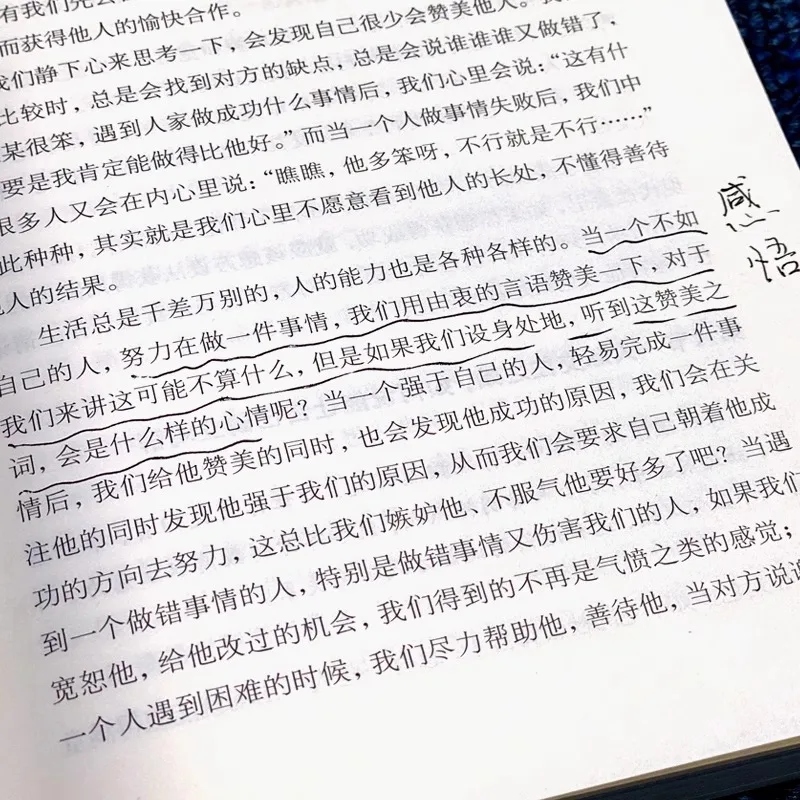 有我们先
而获得他人的愉快合作。
我们静下心来思考一下，会发现自己很少会赞美他人。
比较时，总是会找到对方的缺点，总是会说谁谁谁又做错了，
某很笨，遇到人家做成功什么事情后，我们心里会说：“这有什
要是我肯定能做得比他好。”而当一个人做事情失败后，我们中
很多人又会在内心里说：“瞧瞧，他多笨呀，不行就是不行……”
此种种，其实就是我们心里不愿意看到他人的长处，不懂得善待
他人的结果。
生活总是千差万别的，人的能力也是各种各样的。当一个不如
自己的人，努力在做一件事情，我们用由衷的言语赞美一下，对于
我们来讲这可能不算什么，但是如果我们设身处地，听到这赞美之
词，会是什么样的心情呢？当一个强于自己的人，轻易完成一件事
情后，我们给他赞美的同时，也会发现他成功的原因，我们会在关
注他的同时发现他强于我们的原因，从而我们会要求自己朝着他成
功的方向去努力，这总比我们嫉妒他、不服气他要好多了吧？当遇
到一个做错事情的人，特别是做错事情又伤害我们的人，如果我们
宽恕他，给他改过的机会，我们得到的不再是气愤之类的感觉；
一个人遇到困难的时候，我们尽力帮助他，善待他，当对方说
感
悟